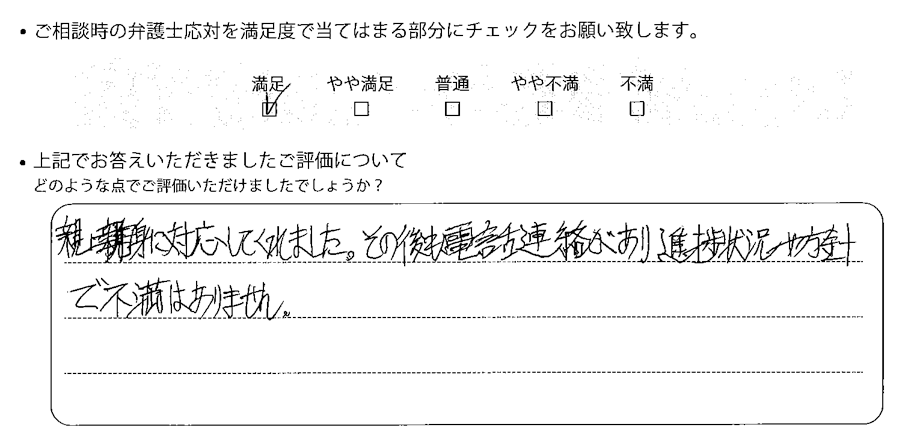 ・ご相談時の弁護士応対を満足度で当てはまる部分にチェックをお願い致します。
満足 やや満足 普通 やや不満 不満
・上記でお答えいただきましたご評価について
どのような点でご評価いただけましたでしょうか？
親身に対応してくれました。その後も電話連絡があり進捗状況や方針
で不満はありません。